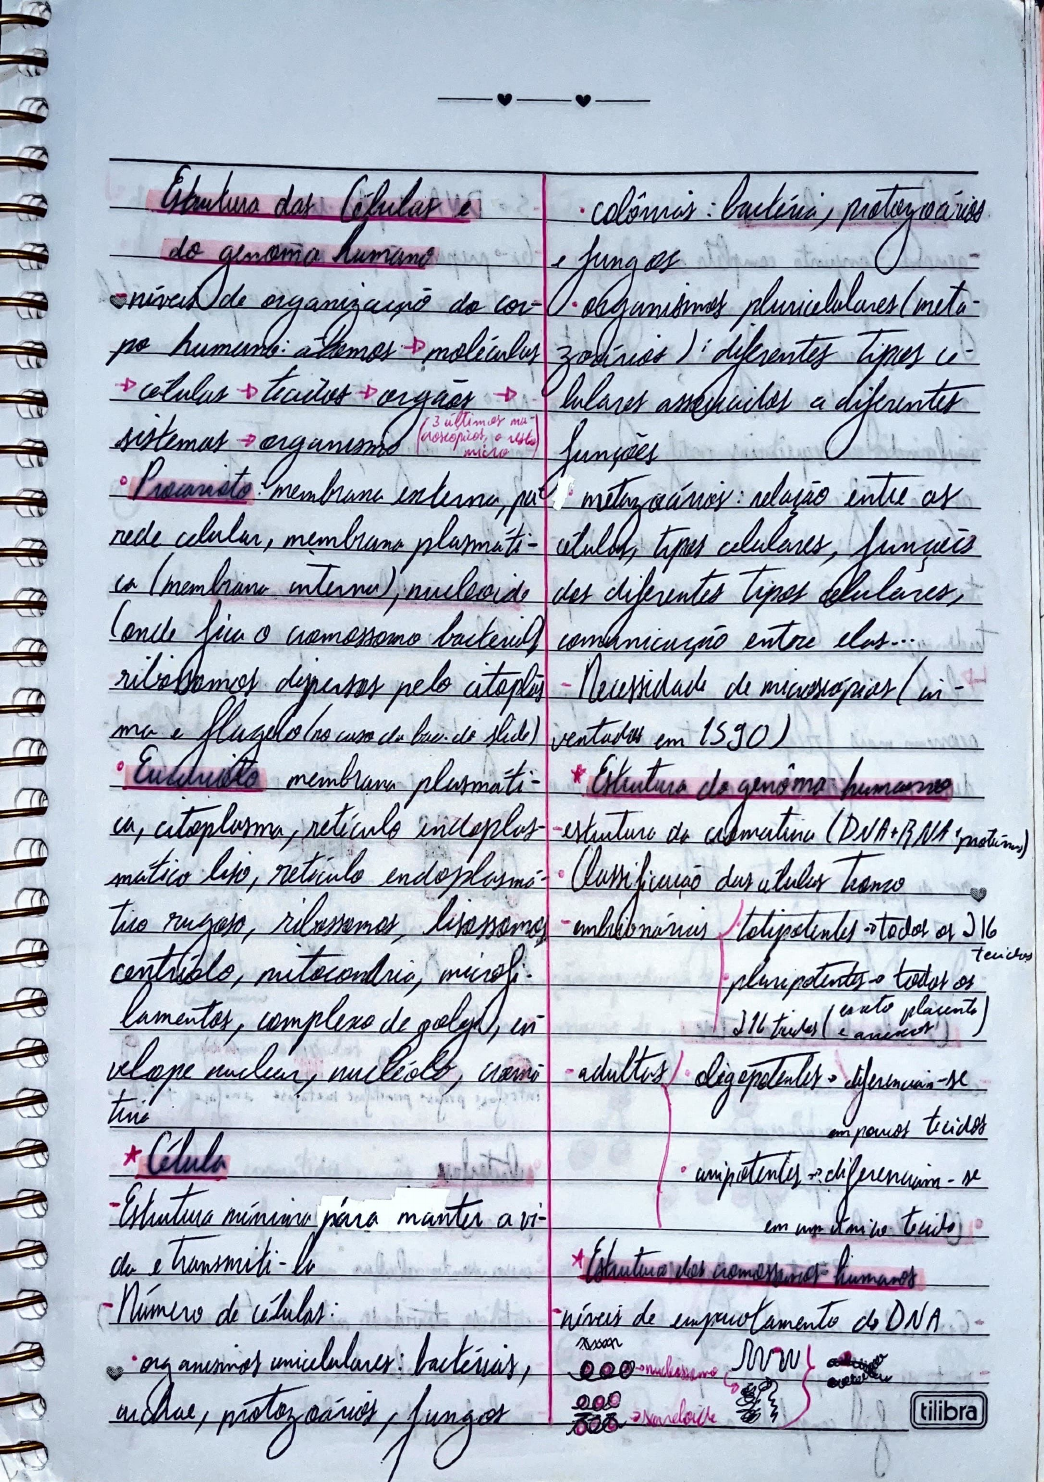 Estrutura das Células e
do genoma humano
níveis de organização do cor-
po humano: átomos → moléculas
→ células → tecidos → orgãos →
sistemas → organismo (3 últimos ma-
croscópicos, o resto
micro)
Procarioto: membrana externa, pa-
rede celular, membrana plasmáti-
ca (membrana interna), nucleoide
(onde fica o cromossomo bacterial)
ribossomos dispersos pelo citoplas
ma e flagelo (no caso da bac. do slide)
Eucarioto membrana plasmáti-
ca, citoplasma, retículo endoplas-
mático liso, retículo endoplasmá-
tico rugoso, ribossomos, lisossomos
centríolo, mitocondria, microfi-
lamentos, complexo de golgi, en
velope nuclear, nucléolo, cromá
tina
* Célula
- Estrutura mínima pára manter a vi-
da e transmiti-la
- Número de células:
• organismos unicelulares: bactérias,
archae, protozoários, fungos
• colônias: bactéria, protozoários
e fungos
• organismos pluricelulares (meta-
zoários): diferentes tipos ce-
lulares associados a diferentes
funções
• metazoários: relação entre as
células, tipos celulares, funções
dos diferentes tipos celulares,
comunicação entre elas...
- Necessidade de microscópios (in-
ventados em 1590)
* Estrutura do genôma humano
- estrutura da cromatina (DNA+RNA+proteínas)
• Classificação das células tronco
- embrionárias • totipotentes → todos os 216
tecidos
• pluripotentes → todos os
216 tecidos (exceto placenta
e anexos)
- adultas • oligopotentes → diferenciam-se
em poucos tecidos
• unipotentes → diferenciam-se
em um único tecido
* Estrutura dos cromossomos humanos
- níveis de empacotamento do DNA
→ nucleossomo
→ solenoide
tilibra